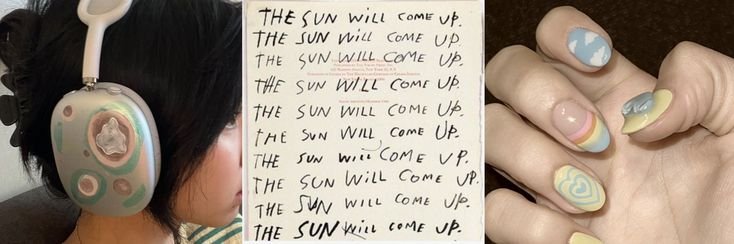 THE SUN WILL COME UP.
THE SUN WILL COME UP.
THE SUN WILL COME UP.
THE SUN WILL COME UP.
THE SUN WILL COME UP.
THE SUN WILL COME UP.
THE SUN WILL COME UP.
THE SUN WILL COME UP.
THE SUN WILL COME UP.
THE SUN WILL COME UP.